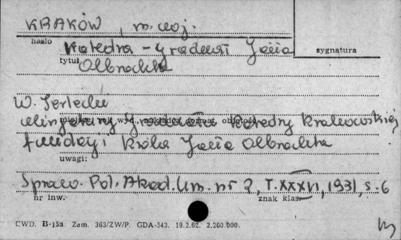 KRAKÓW, m. woj.
hasło
Katedra - grobowiec Jana
sygnatura
tytuł
Olbrachta
W. Terlecki
Katedry Krakowskiej
fundacji Króla Jana Olbrachta
uwagi:
Spraw. Pol. Akad. Um. nr 2, T. XXXVI, 1931, s. 6
nr inw.
znak klas.
CWD. B-15a. Zam. 363/ZW/P. GDA-543. 19.2.62. 2.260.000.